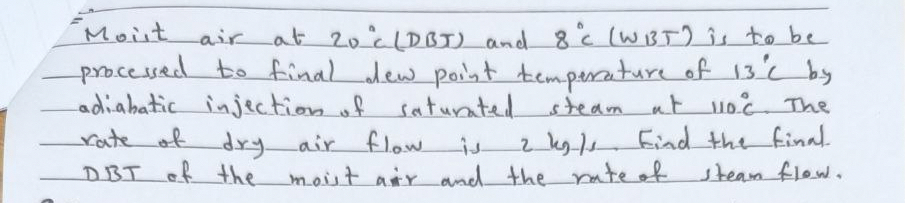 Moist air at 20°c (DBT) and 8°c (WBT) is to be
processed to final dew point temperature of 13°c by
adiabatic injection of saturated steam at 110°c. The
rate of dry air flow is 2 kg/s. Find the final
DBT of the moist air and the rate of steam flow.